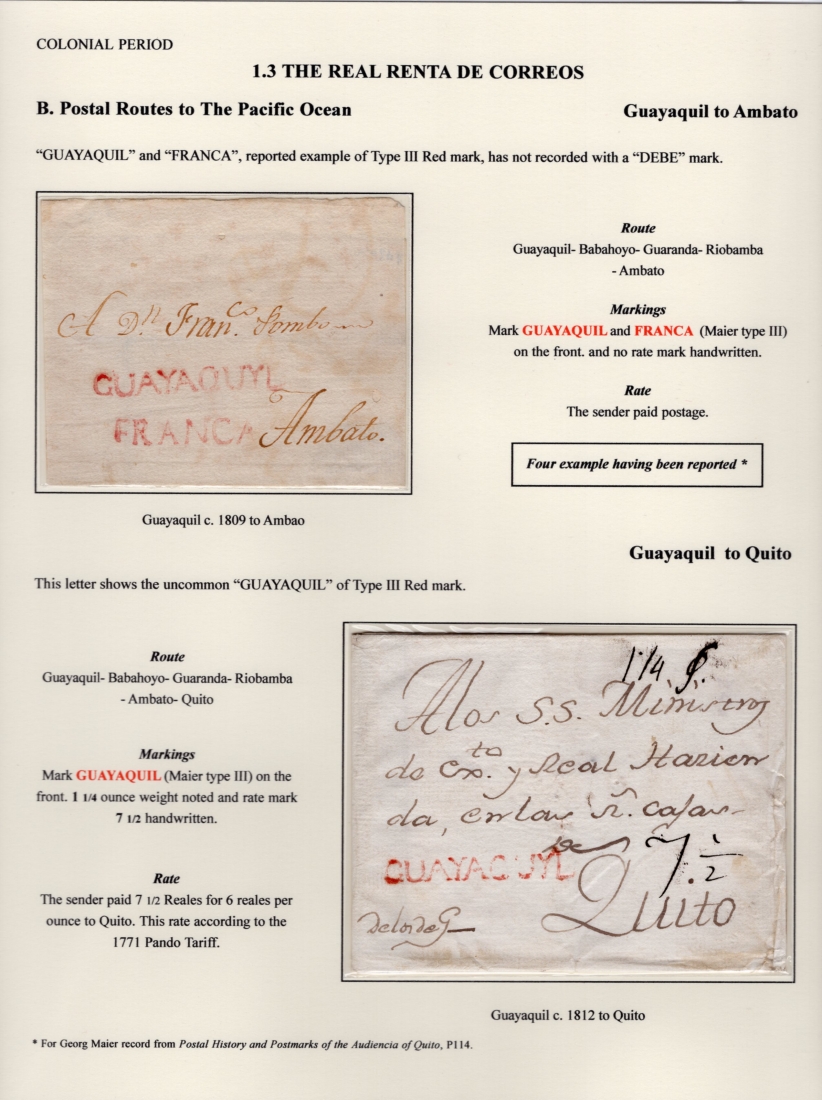 COLONIAL PERIOD
1.3 THE REAL RENTA DE CORREOS
B. Postal Routes to The Pacific Ocean
Guayaquil to Ambato
“GUAYAQUIL” and “FRANCA”, reported example of Type III Red mark, has not recorded with a “DEBE” mark.
A Dn Franco.
GUAYAQUYL
FRANCA Ambato.
Guayaquil c. 1809 to Ambao
Route
Guayaquil- Babahoyo- Guaranda- Riobamba
- Ambato
Markings
Mark GUAYAQUIL and FRANCA (Maier type III)
on the front. and no rate mark handwritten.
Rate
The sender paid postage.
Four example having been reported *
Guayaquil to Quito
This letter shows the uncommon “GUAYAQUIL” of Type III Red mark.
Route
Guayaquil- Babahoyo- Guaranda- Riobamba
- Ambato- Quito
Markings
Mark GUAYAQUIL (Maier type III) on the
front. 1 1/4 ounce weight noted and rate mark
7 1/2 handwritten.
Rate
The sender paid 7 1/2 Reales for 6 reales per
ounce to Quito. This rate according to the
1771 Pando Tariff.
1 1/4
Alos S.S. Ministros
de Exto. y Real Hazien
da, en las Rs. cajas
de
GUAYAQUYL 7.1/2
Quito
Guayaquil c. 1812 to Quito
* For Georg Maier record from Postal History and Postmarks of the Audiencia of Quito, P114.